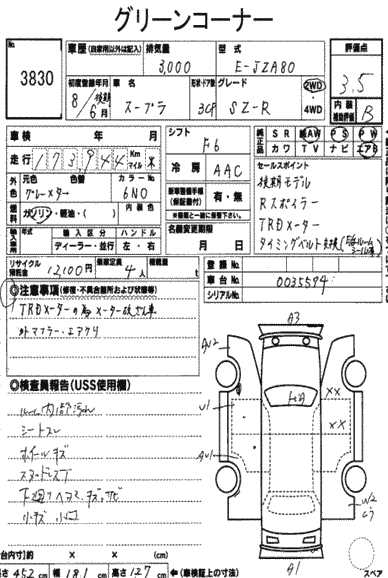 グリーンコーナー
No. 3830
車歴 (自家用以外は記入) 排気量 3,000 型式 E-JZA80 評価点 3.5
初度登録年月 8/6月 後期 車名 スープラ 形状・ドア数 3CP グレード SZ-R 2WD 4WD 内装補助評価 B
車検 年 月 シフト F6 純正品 SR AW PS PW
カワ TV ナビ エアB
走行 173944 Km マイル 冷房 AAC セールスポイント
外色 元色 色替 カラーNo. 6N0 後期モデル
グレーメター Rスポイラー
燃料 ガソリン・軽油・( ) 内装色 新車整備手帳(保証書付) 有・無 TRDメーター
※後期と一緒に保管下さい。 タイミングベルト交換
輸入車用 輸入区分 ハンドル 名義変更期限
ディーラー・並行 左・右 月 日
リサイクル預託金 12,100円 乗車定員 4人 積載量 t 登録No.
車台No. 0035594
シリアルNo.
◎注意事項 (修復・不具合箇所および状態等)
TRDメーターの為メーター改ざん車
社外マフラー・エアクリ
A3
AW2
◎検査員報告 (USS使用欄)
ルーム内装汚れ
U1 XX
シートスレ
XX
ホイールキズ
AU1
下廻りヘコミ、キズ、サビ
W2
小キズ 小凹
A1
(cm)
長さ 452 cm 幅 181 cm 高さ 127 cm ←(車検証上の寸法)
スペア